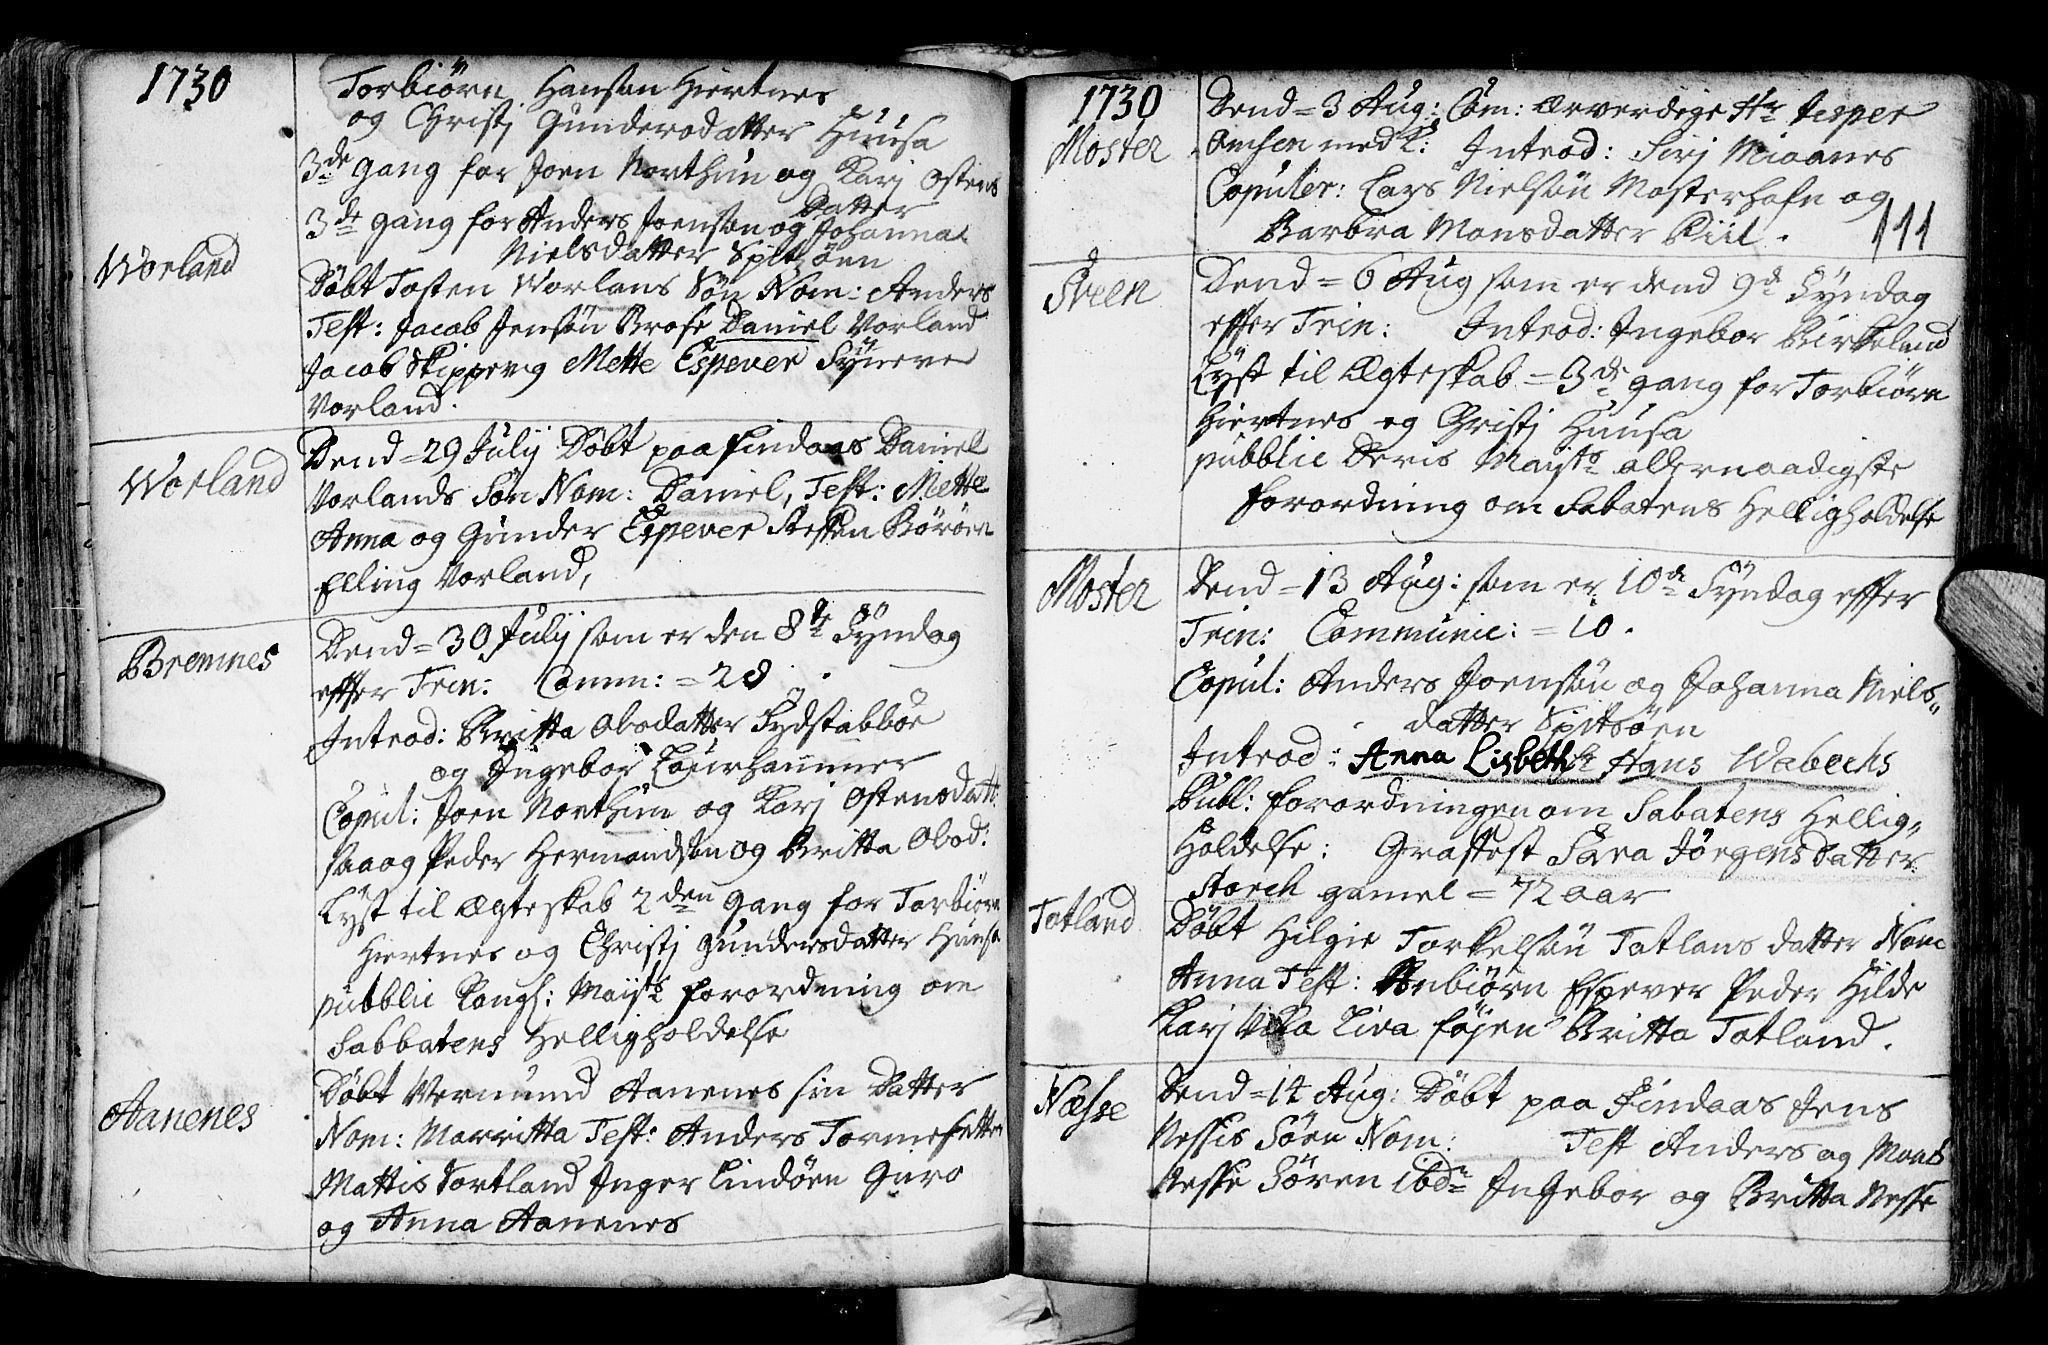 1730
Torbiörn Hanson Hiertnes
og Christj Gundersdatter Huusa
3de gang for Joen Northun og Karj Ostens
Datter
3de gang for Anders Joenson og Johanna
Nielsdatter Spitsöen
Worland
Döbt Tosten Worlans Sön Nom: Anders
Test: Jacob Jensön Brose Daniel Vorland
Jacob Skippevig Mette Espever Syneve
Vorland.
Worland
Dend = 29 Julij Döbt paa Findaas Daniel
Vorlands Sön Nom: Daniel, Test: Mette
Anna og Gunder Espever Steffen Böröen
Elling Vorland,
Bremnes
Dend = 30 Julij som er den 8de Syndag
effter Trin: Comm: = 28
Introd: Britta Obosdatter Sydstabböe
og Ingebor Laurhammer
Copul: Joen Northun og Karj Ostensdatt:
saa og Peder Hermandsön og Britta Obod:
Lyst til Ægteskab 2den gang for Torbiörn
Hiertnes og Christj Gundersdatter Huusa
publlic Kongl: Maijts forordning om
Sabbatens Helligholdelse
Aanenes
Döbt Vermund Aanenes sin Datter
Nom: Marritta Test: Anders Tormesetter
Mattis Tortland Inger Lindöen Guro
og Anna Aanenes
1730
Moster
Dend = 3 Aug: Com: ærverdige Hr Jesper
Omsen med K: Introd: Sirj Mioanes
Copuler: Lars Nielsön Mosterhafn og
Barbra Monsdatter Kiil. 111
Sveen
Dend = 6 Aug som er dend 9de Syndag
effter Trin: Introd: Ingebor Birkeland
Lyst til Ægteskab = 3de gang for Torbiörn
Hiertnes og Christj Huusa
pubblic Deris Maijts allernaadigste
forordning om Sabatens Helligholdelse
Moster
Dend = 13 Aug: som er 10de Syndag effter
Trin: Communic: = 10.
Copul: Anders Joensön og Johanna Niels„
datter Spitsöen
Introd: Anna Lisbeth Hans Wabechs
Publ: forordningen om Sabatens Hellig„
Holdelse: Grastest Sara Jörgensdatter
Storch gamel = 72 aar
Totland
Döbt Hilgie Torkelsön Totlans datter Nom
Anna Test: Anbiörn Espever Peder Hilde
Karj Vika Liva föjen Britta Totland.
Næsse
Dend = 14 Aug: Döbt paa Findaas Jens
Nessis Sören Nom: Test Anders og Mons
Nesse Sören ibdm Ingebor og Britta Nesse